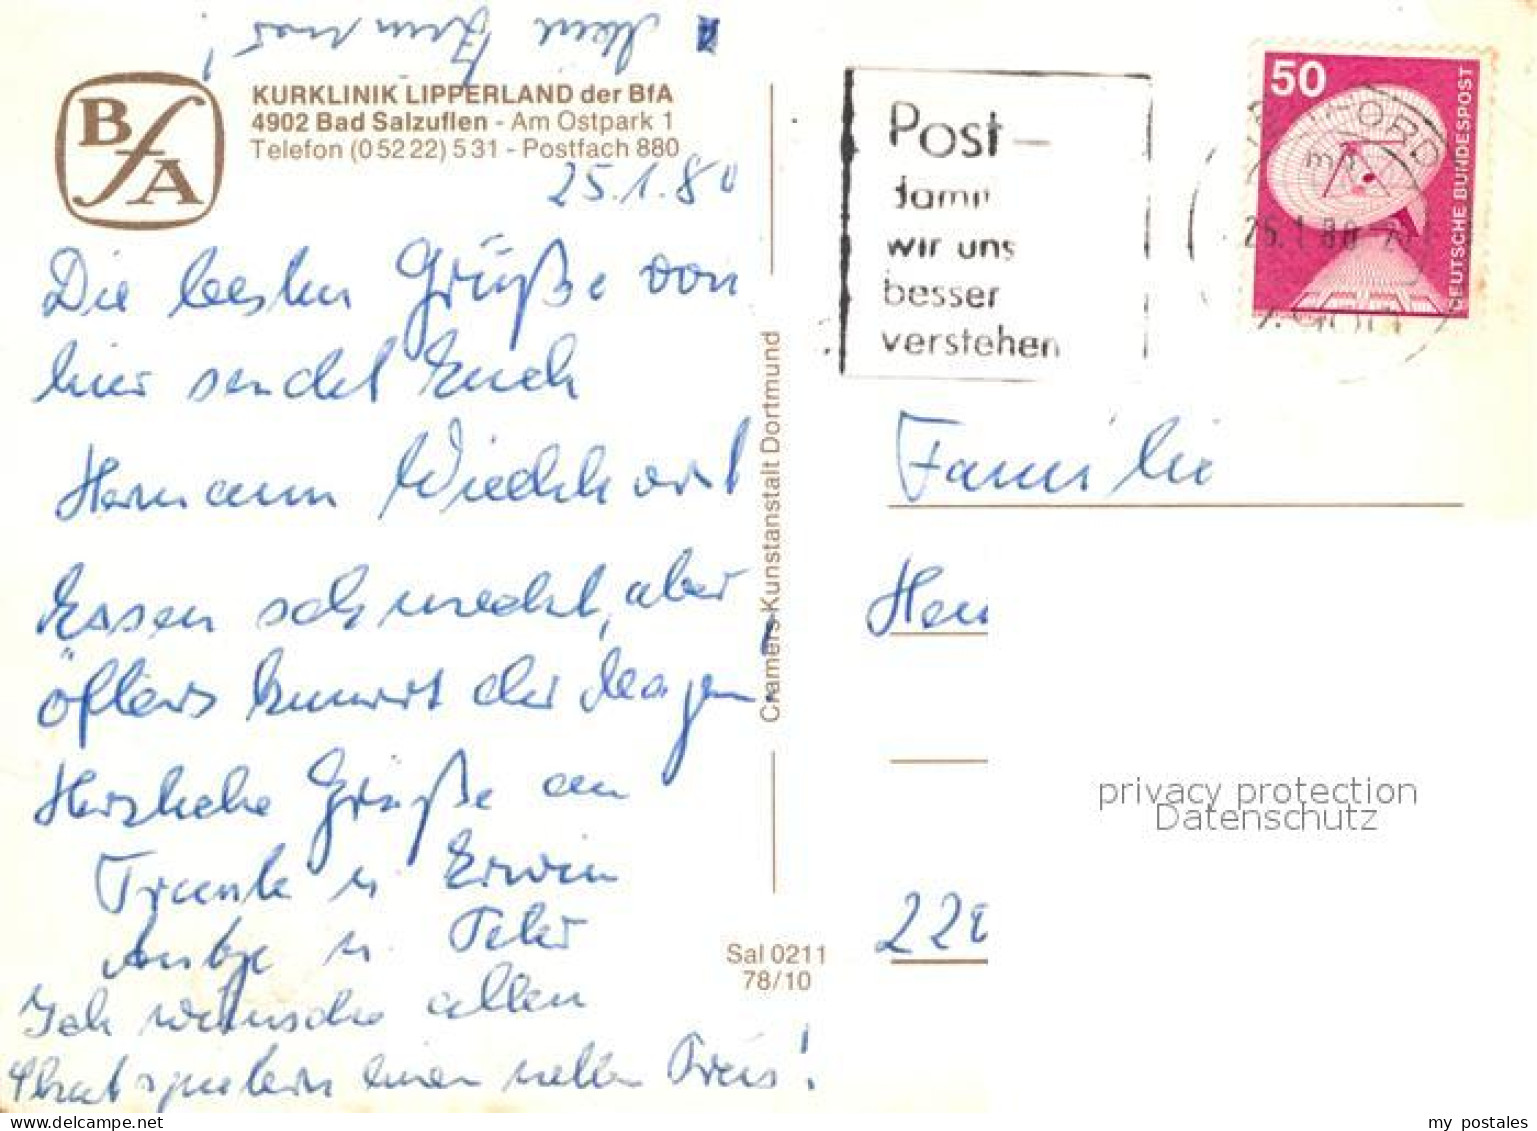 BfA
KURKLINIK LIPPERLAND der BfA
4902 Bad Salzuflen - Am Ostpark 1
Telefon (0 52 22) 5 31 - Postfach 880
25.1.80
Die besten Grüße von
hier sendet Euch
Hermann
Essen schmeckt, aber
öfters knurrt der Magen
Herzliche Grüße an
u. Erwin
Antje u. Peter
Ich wünsche allen
Skatspielern einen netten Preis!
Cramers Kunstanstalt Dortmund
Sal 0211
78/10
Post-
damit
wir uns
besser
verstehen
50
DEUTSCHE BUNDESPOST
Familie
privacy protection
Datenschutz
my postales